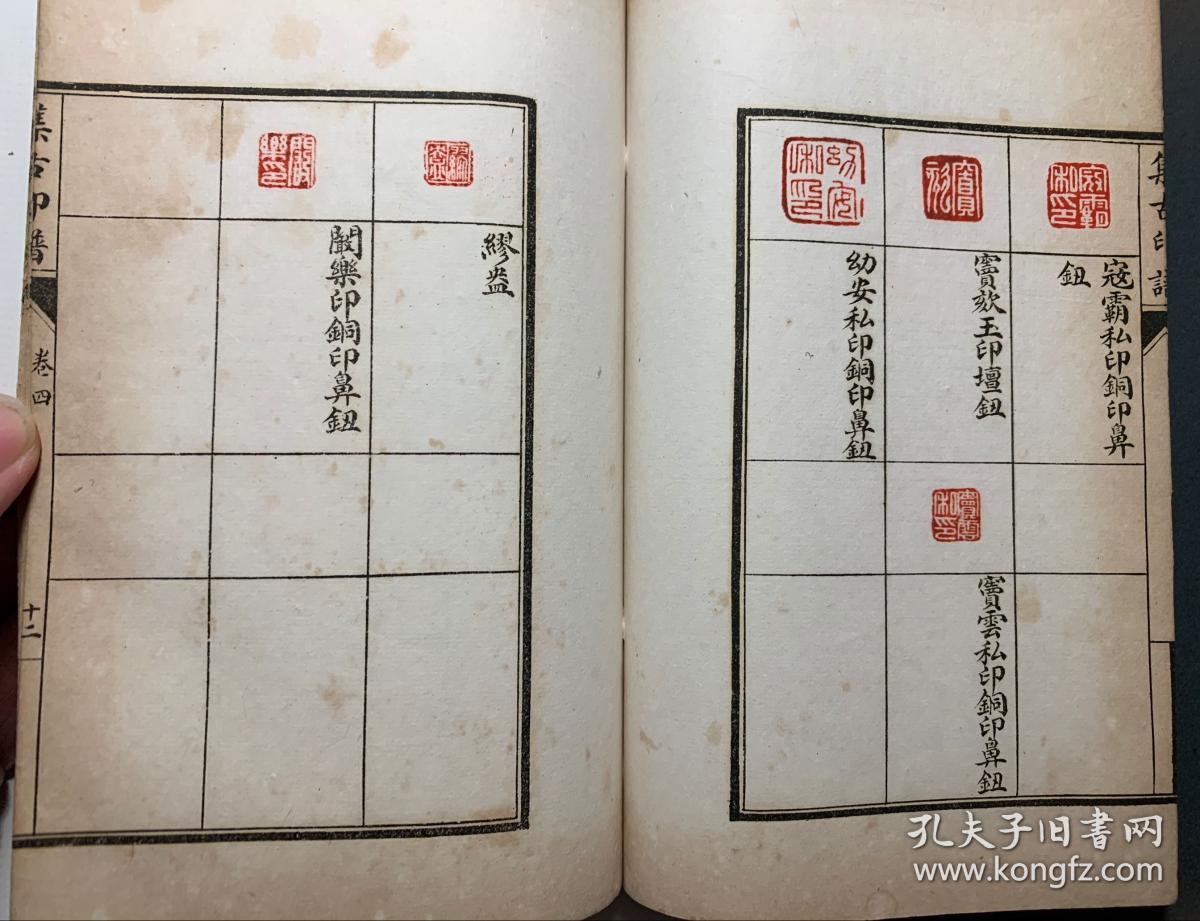 集古印譜
寇霸私印銅印鼻
鈕
竇欬玉印壇鈕
竇雲私印銅印鼻鈕
幼安私印銅印鼻鈕
繆盎
閻樂印銅印鼻鈕
集古印譜
卷四
十二
孔夫子旧书网
www.kongfz.com